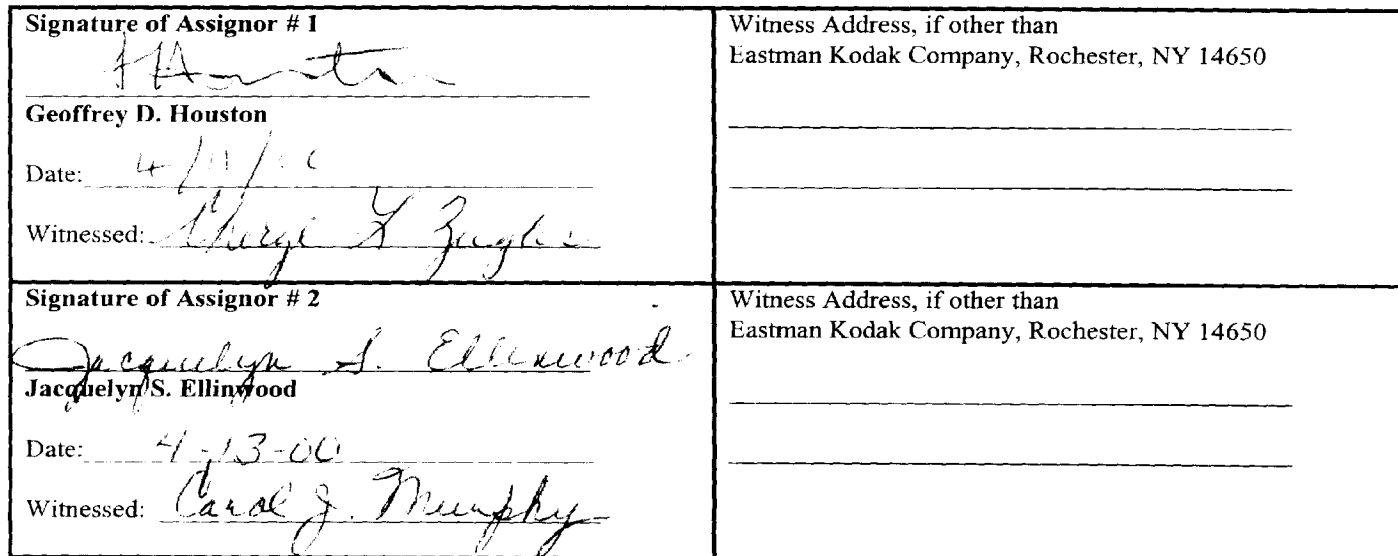 Signature of Assignor # 1
Houston
Geoffrey D. Houston
Date: 4/11/
Witnessed: Cheryl L
Witness Address, if other than
Eastman Kodak Company, Rochester, NY 14650
Signature of Assignor # 2
Jacquelyn S. Ellinwood
Jacquelyn S. Ellinwood
Date: 4-13-00
Witnessed: Carol J. Murphy
Witness Address, if other than
Eastman Kodak Company, Rochester, NY 14650